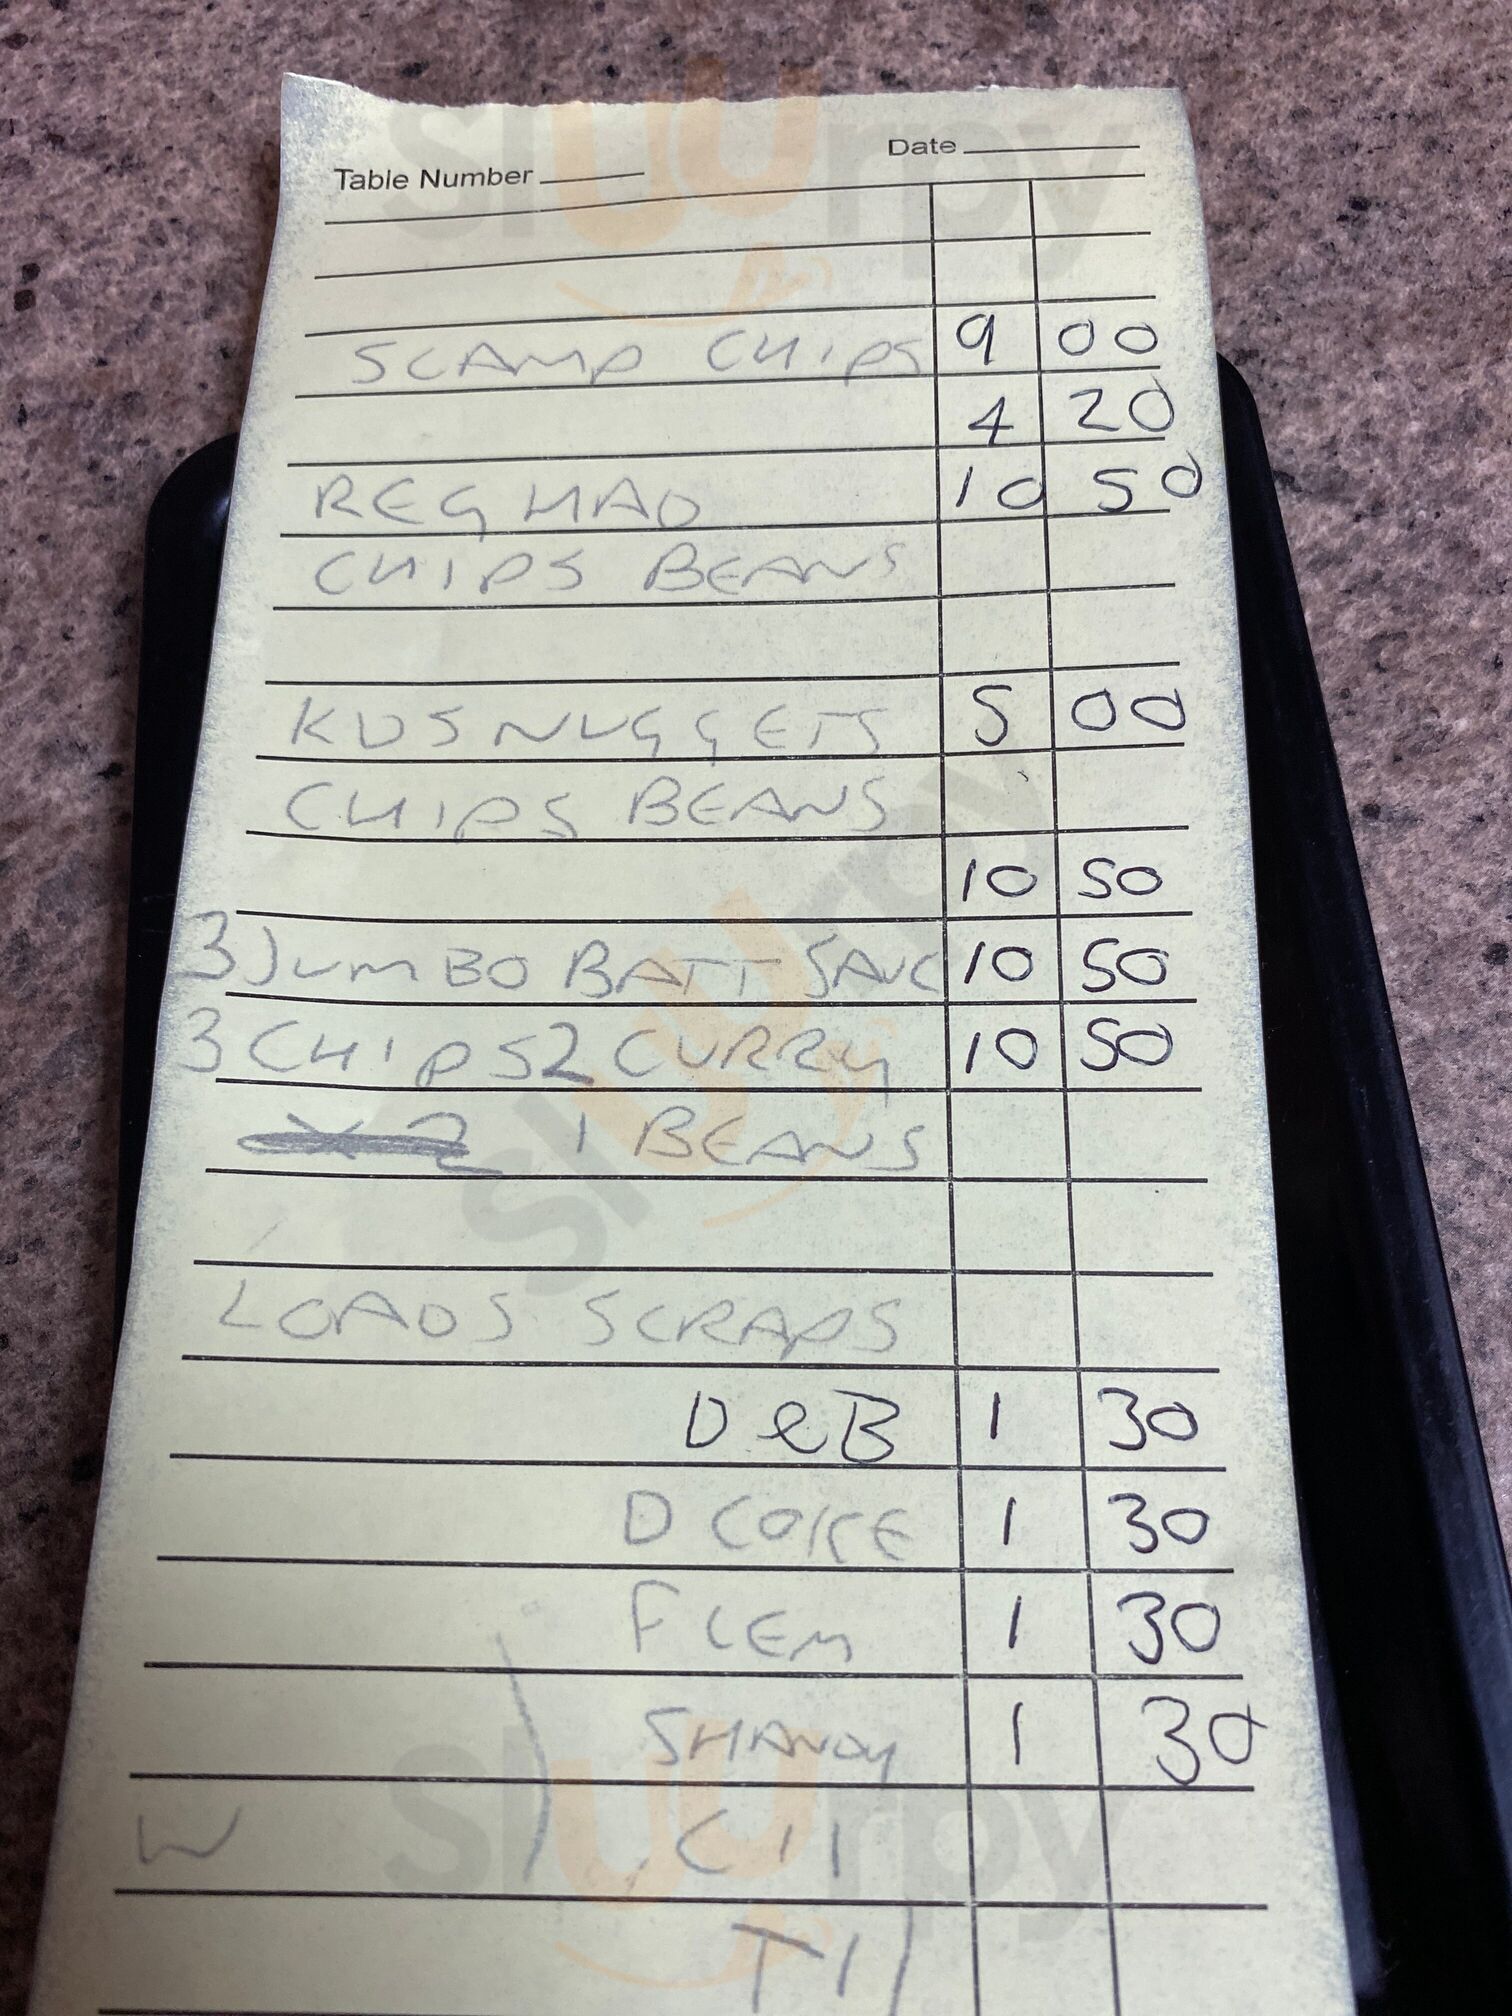 Date
Table Number
SCAMP CHIPS 9 00
4 20
REG HAD 10 50
CHIPS BEANS
KDS NUGGETS 5 00
CHIPS BEANS
10 50
3 JUMBO BATT SAUC 10 50
3 CHIPS 2 CURRY 10 50
1 BEANS
LOADS SCRAPS
D&B 1 30
D COKE 1 30
F LEM 1 30
SHANDY 1 30
W C 11
T 11
slurpy
slurpy
slurpy